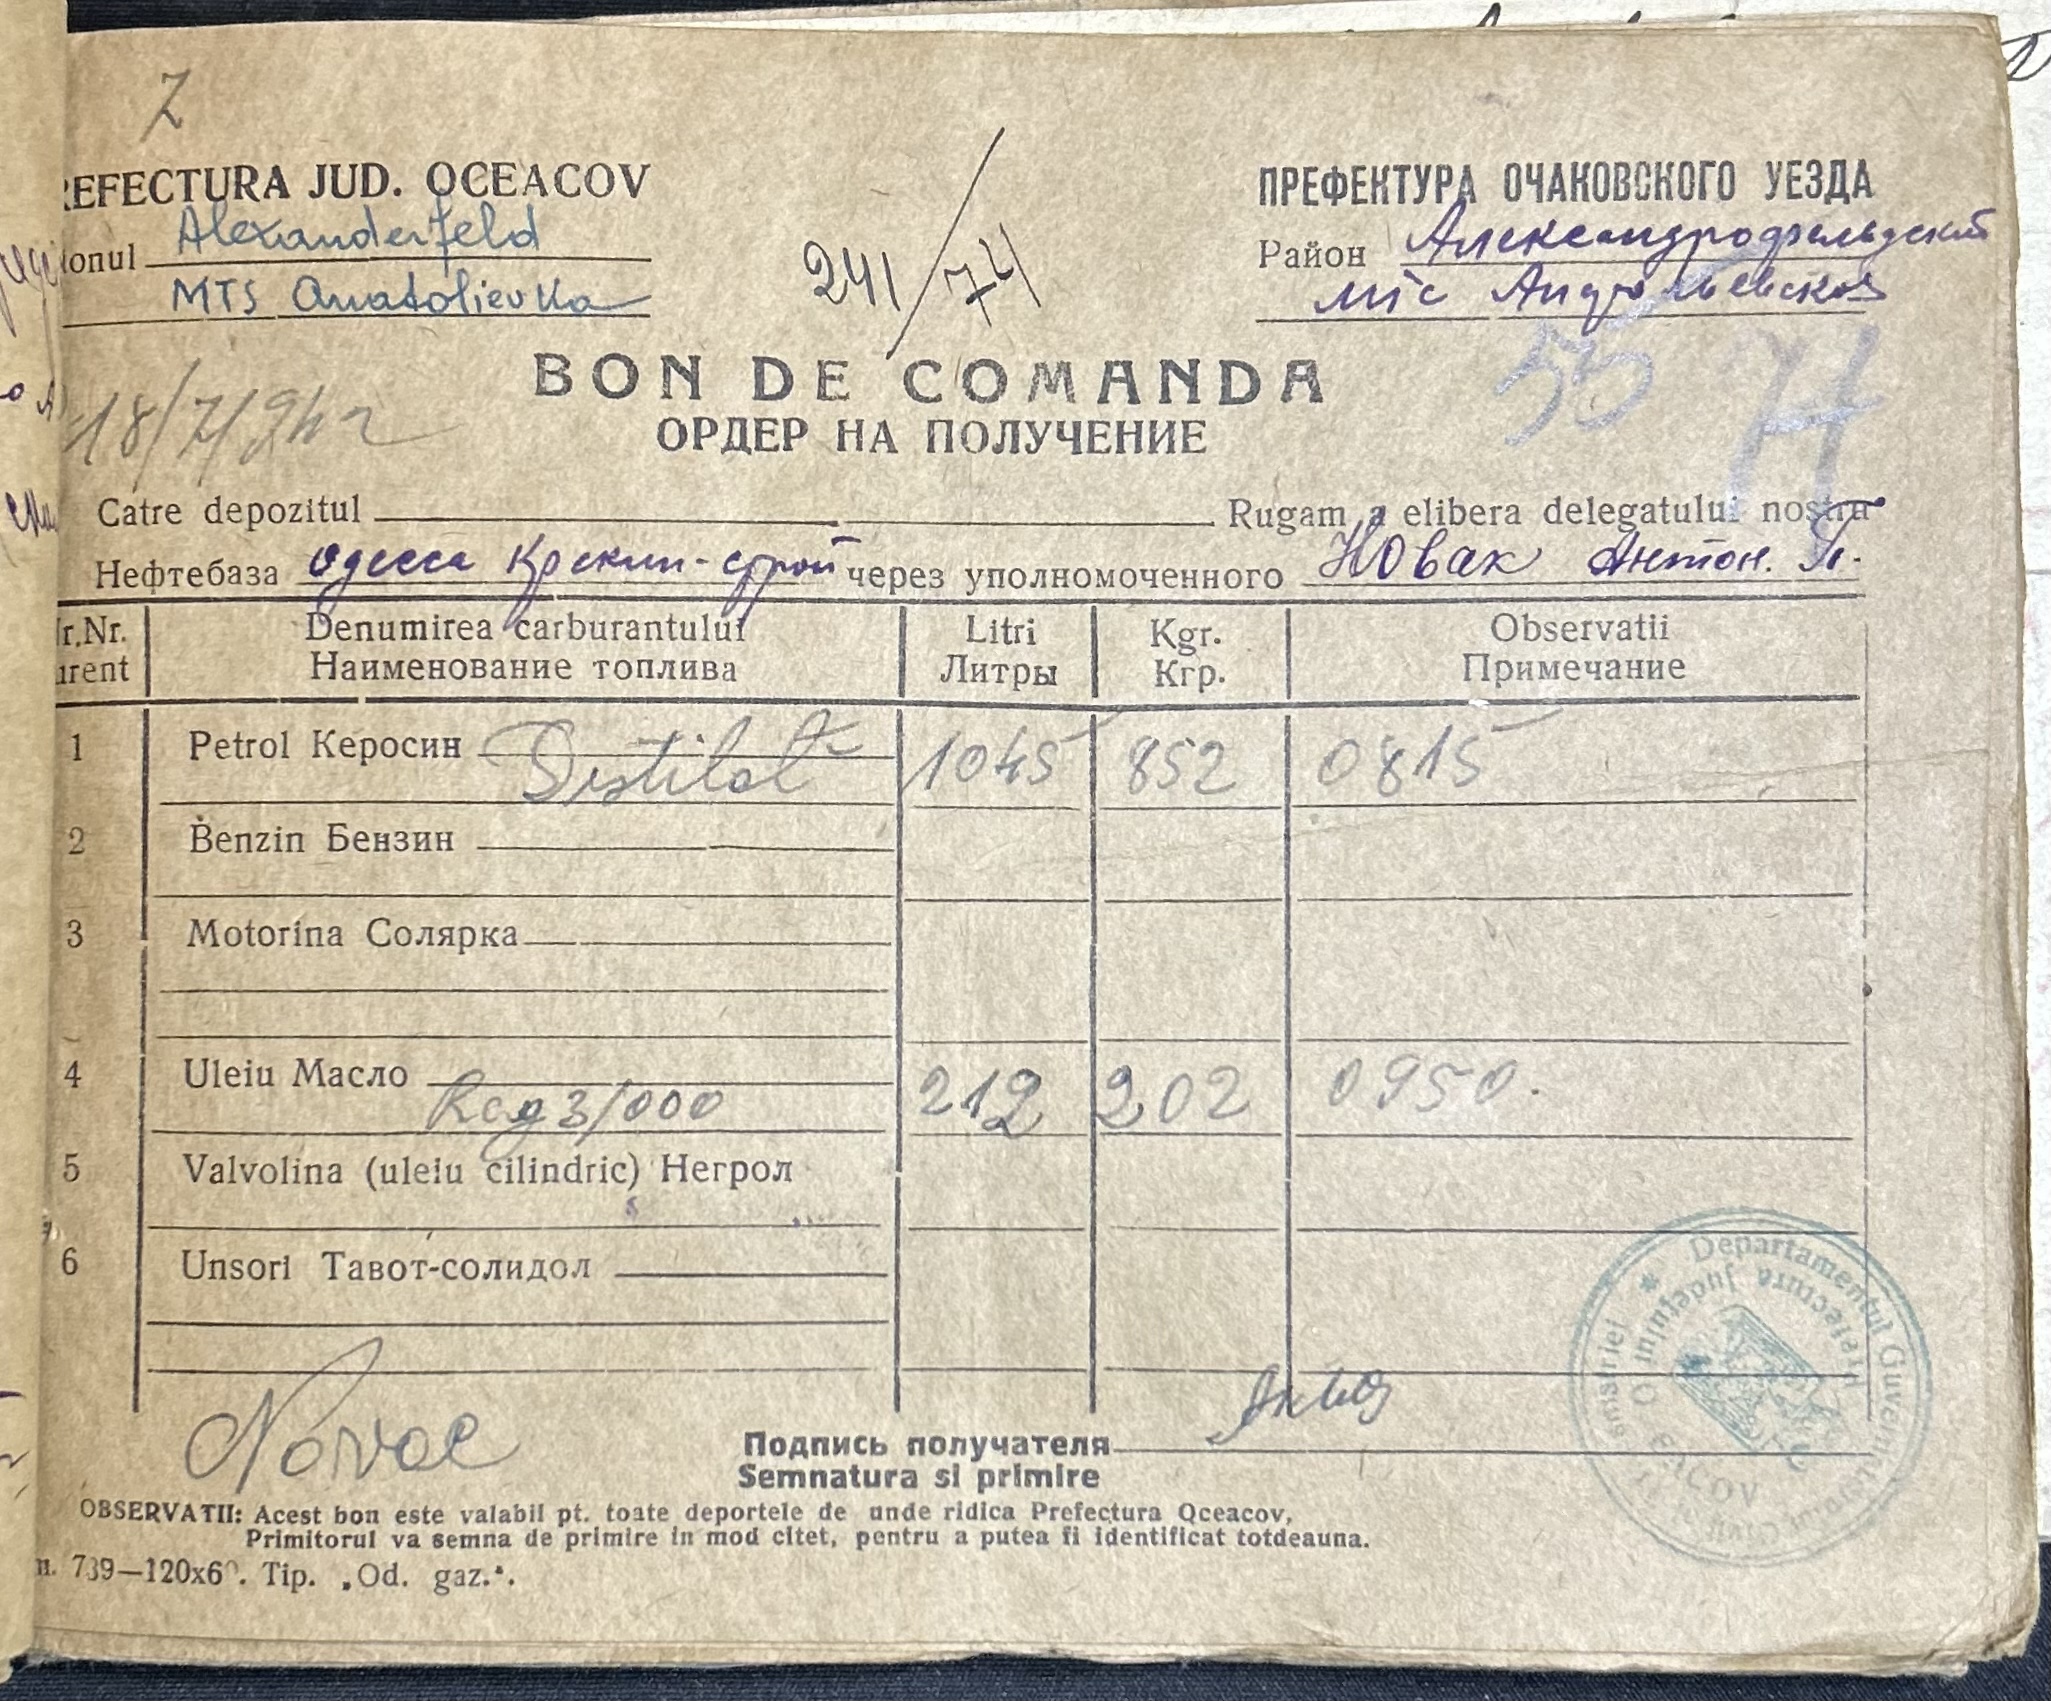 Z
REFECTURA JUD. OCEACOV
ionul Alexanderfeld
MTS Anatolievka
241/74
ПРЕФЕКТУРА ОЧАКОВСКОГО УЕЗДА
Район Александрофельдский
мтс
55 H
18/7/942
BON DE COMANDA
ОРДЕР НА ПОЛУЧЕНИЕ
Catre depozitul Rugam a elibera delegatului nostru
Нефтебаза Одесса Крекин-строй через уполномоченного Новак Антон. П.
r.Nr. Denumirea carburantului Litri Kgr. Observatii
urent Наименование топлива Литры Кгр. Примечание
1 Petrol Керосин Distilat 1045 852 0815
2 Benzin Бензин
3 Motorina Солярка
4 Uleiu Масло 212 202 0950.
Reg 3/000
5 Valvolina (uleiu cilindric) Негрол
6 Unsori Тавот-солидол
Novac
Подпись получателя
Semnatura si primire
Departamentul Guvern
Prefectura Judeţului O EACOV
OBSERVATII: Acest bon este valabil pt. toate deportele de unde ridica Prefectura Oceacov,
Primitorul va semna de primire in mod citet, pentru a putea fi identificat totdeauna.
. 739—120x6 . Tip. „Od. gaz.".